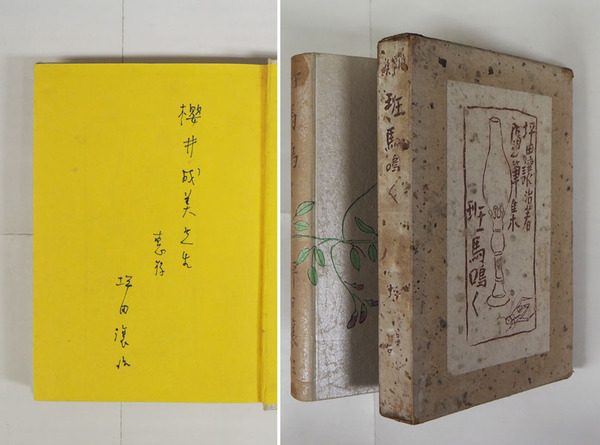 櫻井成美先生
恵存
坪田譲治
随筆集
班馬鳴く
坪田譲治著
随筆集
班馬鳴く